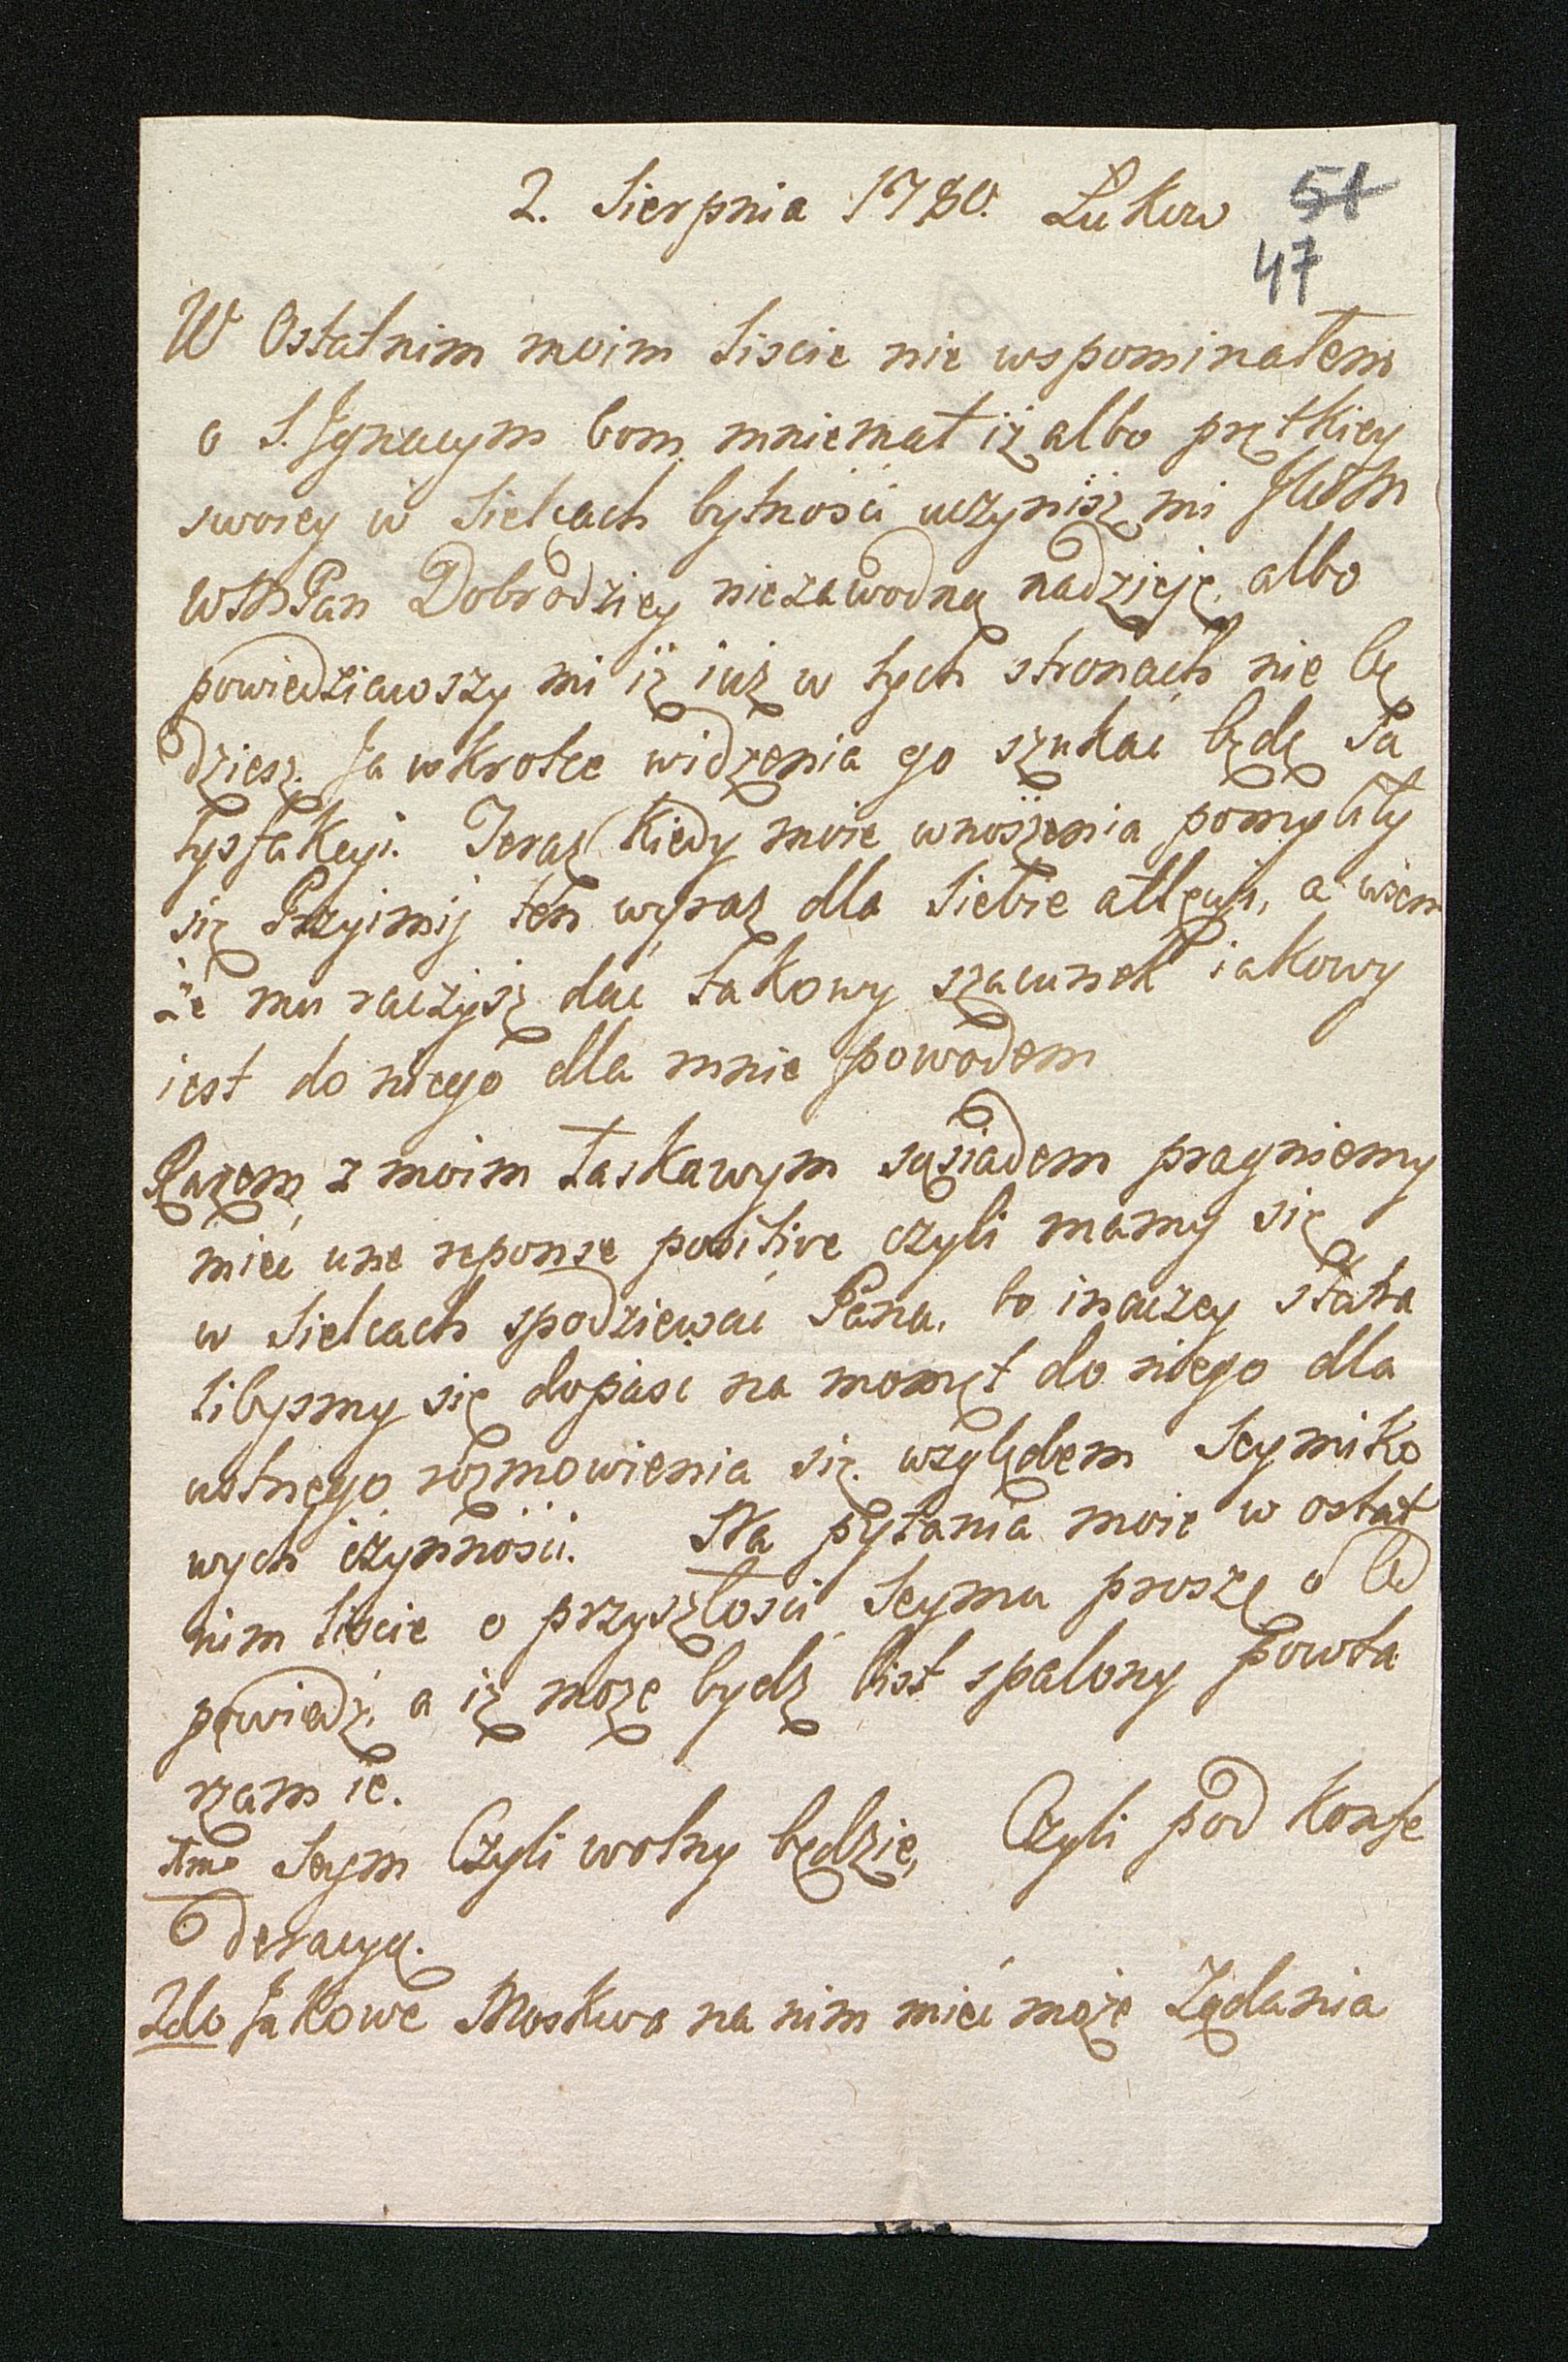 2. Sierpnia 1780. Łukow
51
47
W Ostatnim moim Liscie nie wspominałem
o S. Jgnacym bom mniemał iż albo prętkiey
swoiey w Sielcach bytnosci uczynisz mi JWM
WM Pan Dobrodziey niezawodną nadzieję, albo
powiedziawszy mi iż iuż w tych stronach nie bę
dziesz. Ja wkrotce widzenia go szukać będę Sa
tysfakcyi. Teraz kiedy moie wnoszenia pomyliły
się Przyimij ten wyraz dla Siebie attęcyi, a wiem
że mu raczysz dać takowy szacunek iakowy
iest do niego dla mnie powodem
Razem z moim Łaskawym sąsiadem pragniemy
mieć une reponse positive czyli mamy się
w Sielcach spodziewać Pana, bo inaczey stara
libysmy się dopaść na momęt do niego dla
ustnego rozmowienia się względem Seymiko
wych czynnosci. Na pytania moie w ostat
nim liscie o przyszłosci Seymu proszę o od
powiedź, a iż może bydz list spalony powta
rzam ie.
1mo Seym Czyli wolny będzie, Czyli pod Konfe
deracyą.
2do Jakowe Moskwa na nim mieć może Żądania